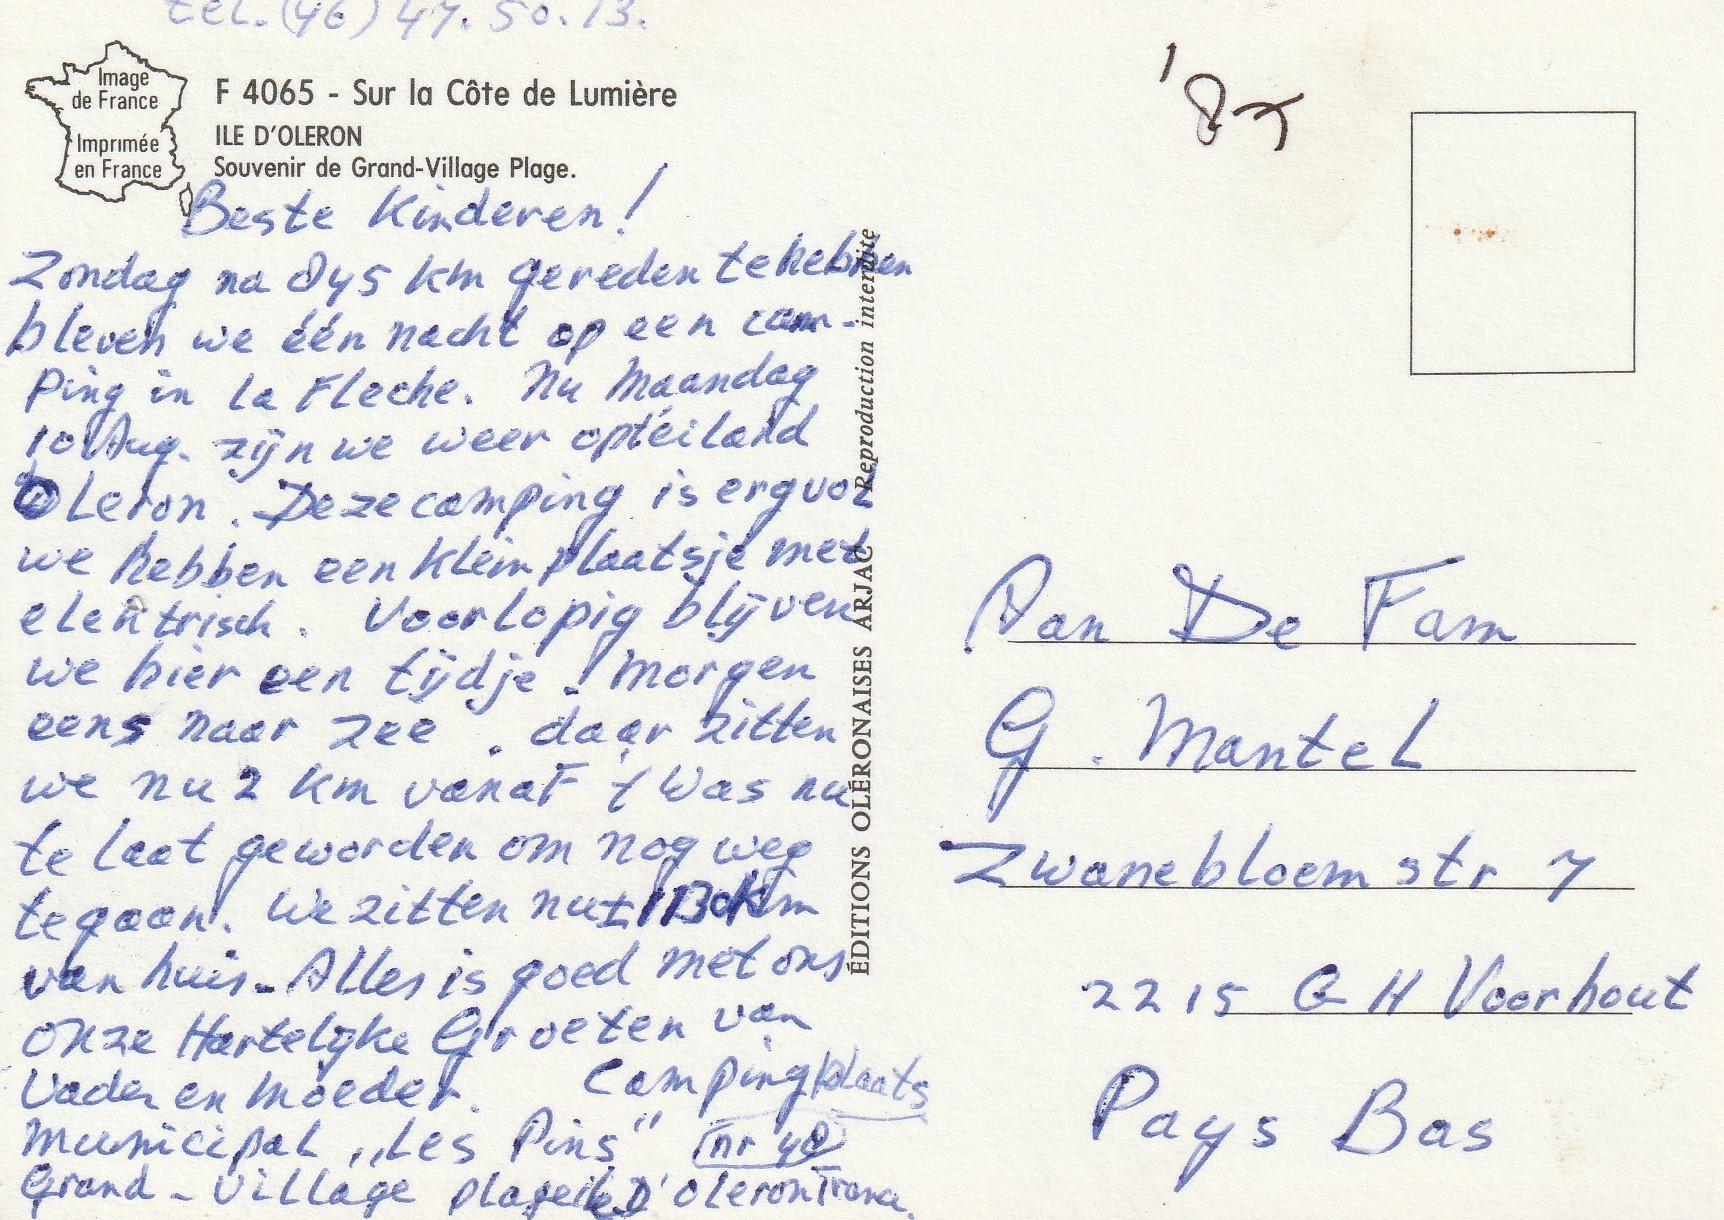 tel. (46) 47.50.13.
Image
de France
Imprimée
en France
F 4065 - Sur la Côte de Lumière
ILE D'OLERON
Souvenir de Grand-Village Plage.
'87
Beste Kinderen!
Zondag na 845 km gereden te hebben
bleven we één nacht op een cam-
ping in la Fleche. Nu Maandag
10 Aug. zijn we weer op 't eiland
Oleron. Deze camping is erg vol
we hebben een klein plaatsje met
elektrisch. Voorlopig blijven
we hier een tijdje! morgen
eens naar zee. daar zitten
we nu 2 km vanaF 't Was nu
te laat geworden om nog weg
te gaan. We zitten nu ± 1130 km
van huis. Alles is goed met ons
onze Hartelijke Groeten van
Vader en moeder. Campingplaats
municipal „Les Pins" nr 48
Grand-Village plage ile D'oleron France.
ÉDITIONS OLÉRONAISES ARJAC Reproduction interdite
Aan De Fam
G. Mantel
Zwanebloemstr 7
2215 GH Voorhout
Pays Bas